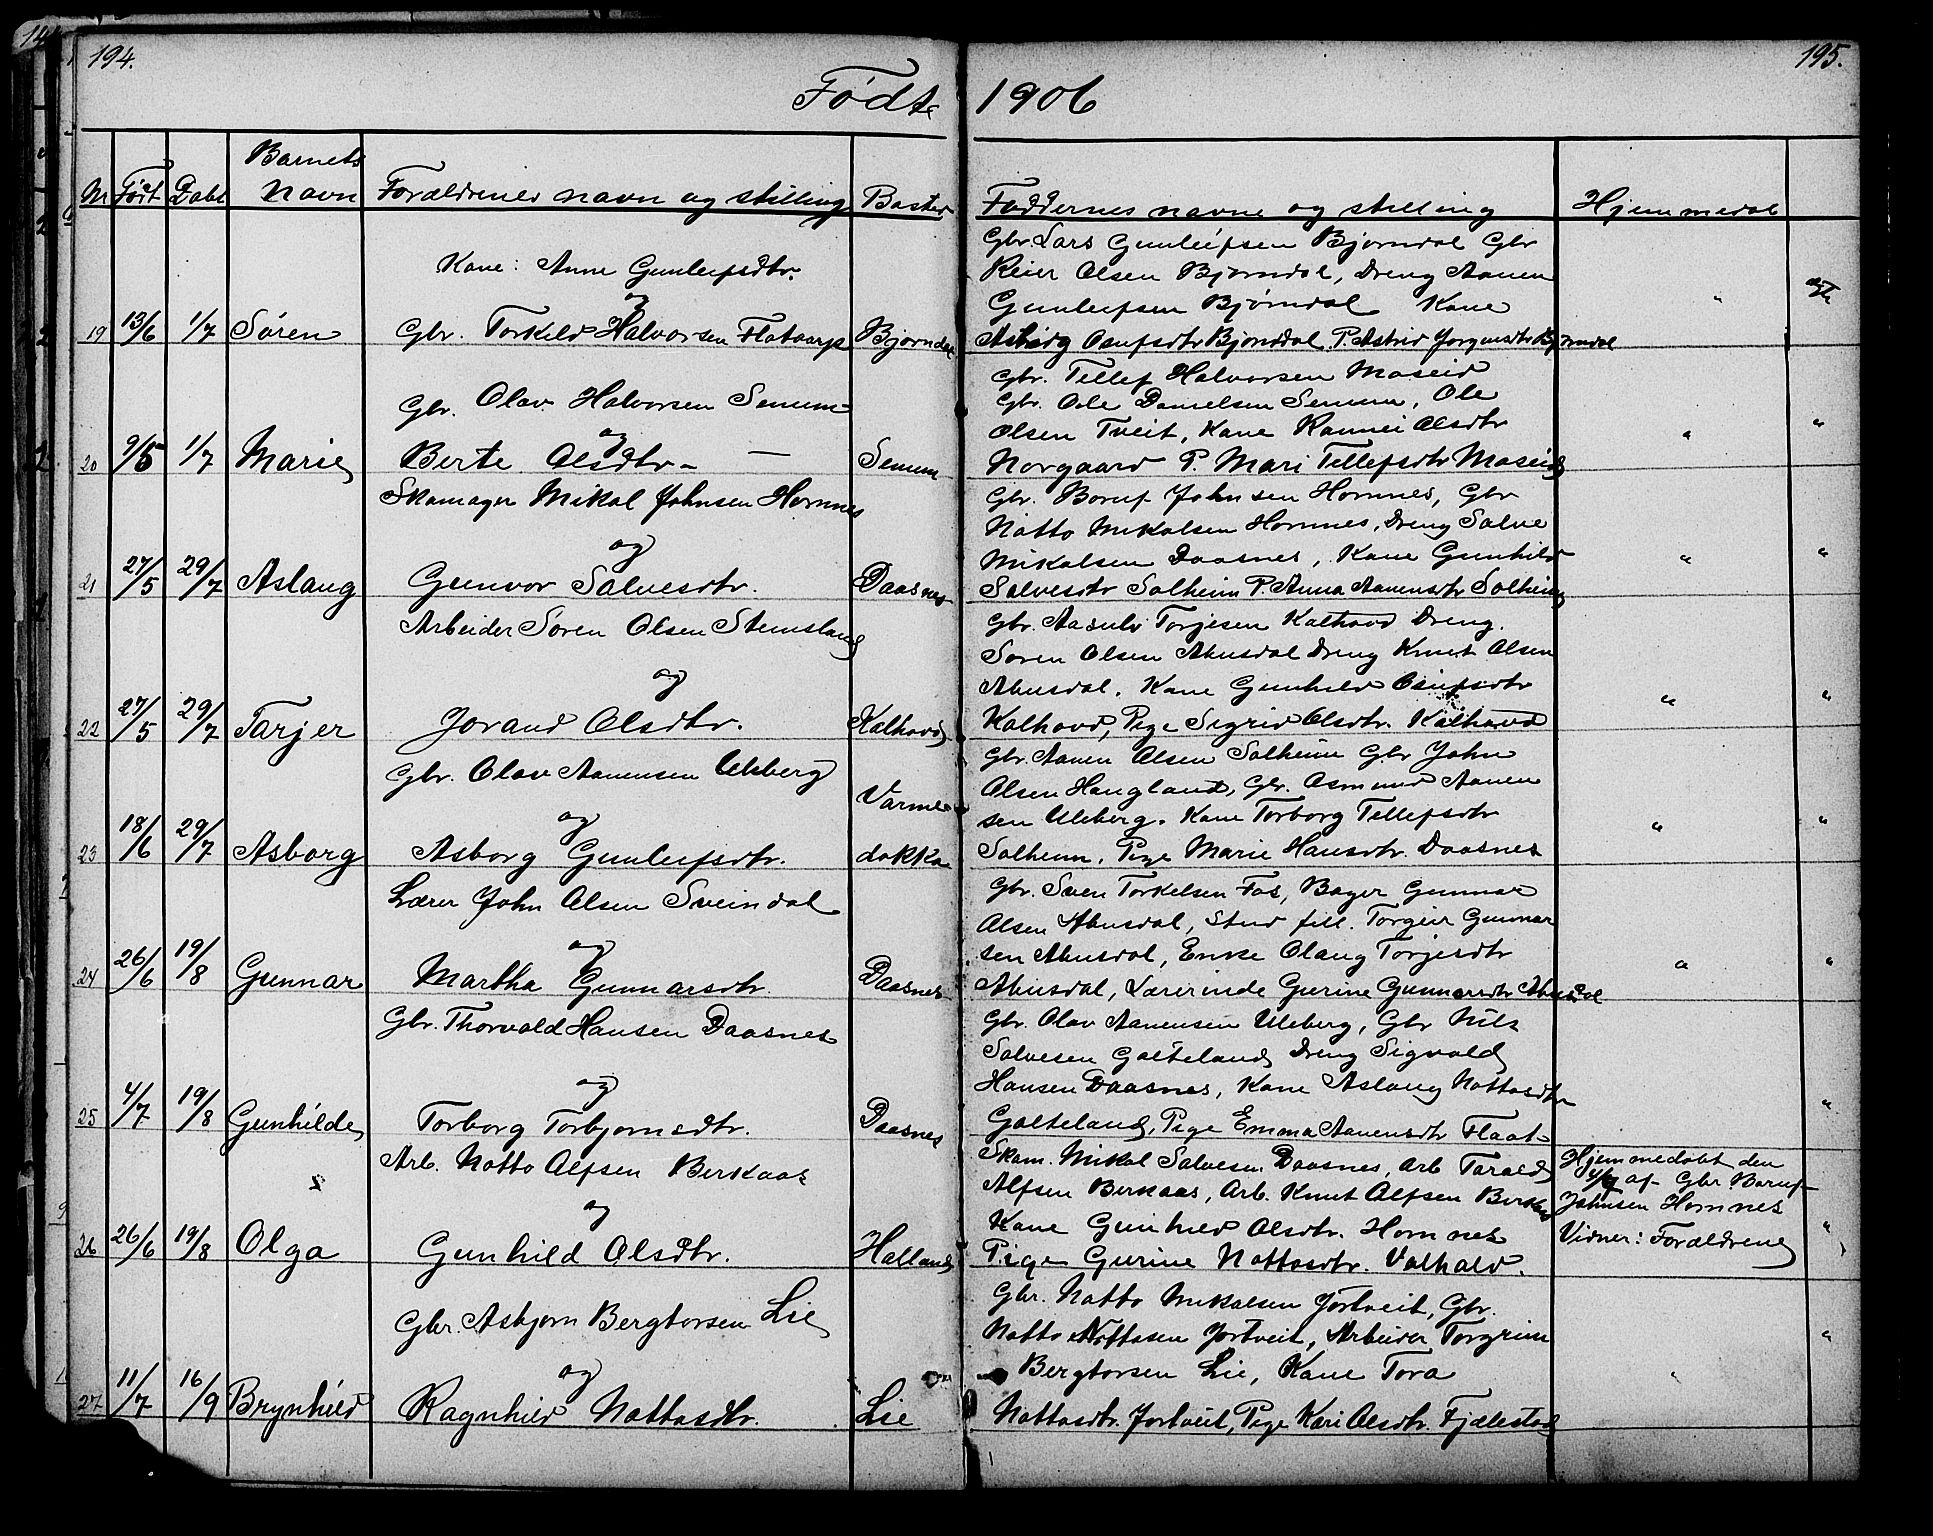 194.
195.
Födte 1906
Nr Födt Döbt Barnets navn Forældrenes navn og stilling Bosted Faddernes navne og stilling Hjemmedøb
Kone: Anne Gunleifsdtr.
og
19 13/6 1/7 Søren Gbr. Torkild Halvorsen Flataarp Bjorndal
Gbr. Lars Gunleifsen Bjorndal Gbr
Reier Olsen Bjorndal, Dreng Aanen
Gunleifsen Bjørndal Kone
Osufsdtr Bjorndal P. Astrid Jorgensdtr Bjorndal
"
Gbr. Olav Halvorsen Senum
og
20 9/5 1/7 Marie Berte Olsdtr - — Senum
Gbr. Tellef Halvorsen Moseid
Gbr. Ole Danielsen Senum, Ole
Olsen Tveit, Kone Rannei Olsdtr
Norgaard P. Mari Tellefsdtr Moseid
" "
Skomager Mikal Johnsen Hornnes
og
21 27/5 29/7 Aslaug Gunvor Salvesdtr. Daasnes
Gbr. Boruf Johnsen Hornnes, Gbr
Notto Mikalsen Hornnes, Dreng Salve
Mikalsen Daasnes, Kone Gunhild
Salvesdtr Solheim P. Anna Aanensdtr Solheim
" "
Arbeider Soren Olsen Stemsland
og
22 27/5 29/7 Tarjer Jorand Olsdtr. Kalhovd
Gbr. Aasulv Torjesen Kalhovd Dreng.
Soren Olsen Abusdal Dreng Knut Olsen
Abusdal. Kone Gunhild Osufsdtr
Kalhovd, Pige Sigrid Olsdtr. Kalhovd
" "
Gbr. Olav Aanensen Uleberg
og
23 18/6 29/7 Asborg Asborg Gunleifsdtr. Varmedokka
Gbr. Aanen Olsen Solheim Gbr John
Olsen Haugland, Gbr. Osmund Aanen
sen Uleberg. Kone Torborg Tellefsdtr
Solheim. Pige Marie Hansdtr. Daasnes
" "
Lærer John Olsen Sveindal
og
24 26/6 19/8 Gunnar Martha Gunnarsdtr. Daasnes
Gbr. Sven Torkelsen Fos, Bager Gunnar
Olsen Abusdal, Stud fill. Torgeir Gunnar
sen Abusdal, Enke Olaug Torjesdtr
Abusdal, Lærerinde Gurine Gunnarsdtr Abusdal
" "
Gbr. Thorvald Hansen Daasnes
og
25 4/7 19/8 Gunhilde Torborg Torbjornsdtr. Daasnes
Gbr. Olav Aanensen Uleberg, Gbr Nils
Salvesen Galteland, Dreng Sigvald
Hansen Daasnes, Kone Aslaug Nottosdtr
Galteland, Pige Emma Aanensdtr Flaat-
"
Arb. Notto Alfsen Berkaas
og
26 26/6 19/8 Olga Gunhild Olsdtr. Halland
Skom. Mikal Salvesen Daasnes, Arb Tarald
Alfsen Berkaas, Arb. Knut Alfsen Berkaas
Kone Gunhild Olsdtr. Hornnes
Pige Gurine Nottosdtr. Valhald.
Hjemmedobt den
af Gbr. Boruf
Johnsen Hornnes
Vidner: Forældrene
"
Gbr. Asbjorn Bergtorsen Lie
og
27 11/7 16/9 Brynhild Ragnhild Nottosdtr. Lie
Gbr. Notto Mikalsen Jortveit, Gbr.
Notto Nottosen Jortveit, Arbeider Torgrim
Bergtorsen Lie, Kone Tora
Nottosdtr. Jortveit, Pige Kari Olsdtr. Fjælestad
"